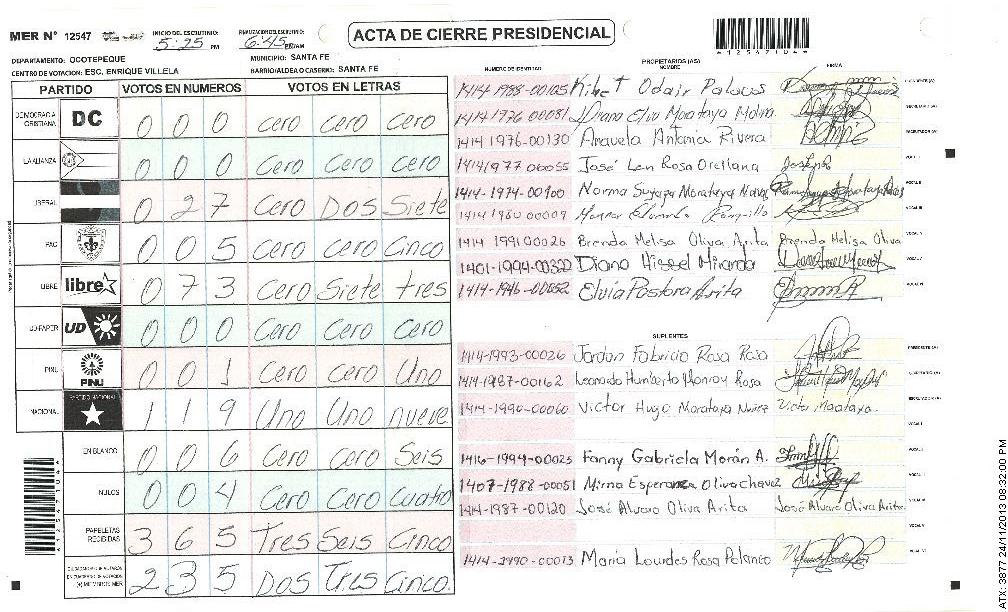 MER N° 12547
INICIO DEL ESCRUTINIO: 5:25 PM
FINALIZACION DEL ESCRUTINIO: 6:45 PM/AM
ACTA DE CIERRE PRESIDENCIAL
A12547104A
DEPARTAMENTO: OCOTEPEQUE
MUNICIPIO: SANTA FE
CENTRO DE VOTACION: ESC. ENRIQUE VILLELA
BARRIO/ALDEA O CASERIO: SANTA FE
PARTIDO VOTOS EN NUMEROS VOTOS EN LETRAS
DEMOCRACIA CRISTIANA DC 0 0 0 Cero Cero Cero
LA ALIANZA 0 0 0 Cero Cero Cero
LIBERAL 0 2 7 Cero Dos Siete
PAC 0 0 5 Cero Cero Cinco
LIBRE libre 0 7 3 Cero Siete tres
UD-FAPER UD 0 0 0 Cero Cero Cero
PINU PINU 0 0 1 Cero Cero Uno
NACIONAL PARTIDO NACIONAL 1 1 9 Uno Uno nueve
EN BLANCO 0 0 6 Cero Cero Seis
NULOS 0 0 4 Cero Cero Cuatro
PAPELETAS RECIBIDAS 3 6 5 Tres Seis Cinco
CIUDADANOS QUE VOTARON EN CUADERNO DE VOTACION (+) MIEMBROS MER 2 3 5 Dos Tres Cinco
NUMERO DE IDENTIDAD PROPIETARIOS (AS) NOMBRE FIRMA
1414-1988-00105 Odair
1414-1976-00081 Diana Morataya Molina
1414 1976-00130 Antonia Rivera
1414 1977-00055 José Rosa Orellana
1414-1974-00100 Norma Suyapa Morataya
1414 1980 00009
1414 1991 00026 Brenda Melisa Oliva Arita Brenda Melisa Oliva
1401-1994-00322 Diana Hissel Miranda
1414-1946-00052 Elvia Pastora Arita
SUPLENTES
1414-1993-00026 Jordan Fabricio Rosa Rosa
1414-1987-00162 Leonardo Humberto Monroy Rosa
1414-1990-00060 Victor Hugo Morataya Nuñez
1416-1994-00025 Fanny Gabriela Morán A.
1407-1988-00051 Mirna Esperanza Oliva Chavez
1414-1987-00120 José Alvaro Oliva Arita José Alvaro Oliva Arita
1414-1990-00073 Maria Lourdes Rosa
ATX: 3877 24/11/2013 08:32:00 PM